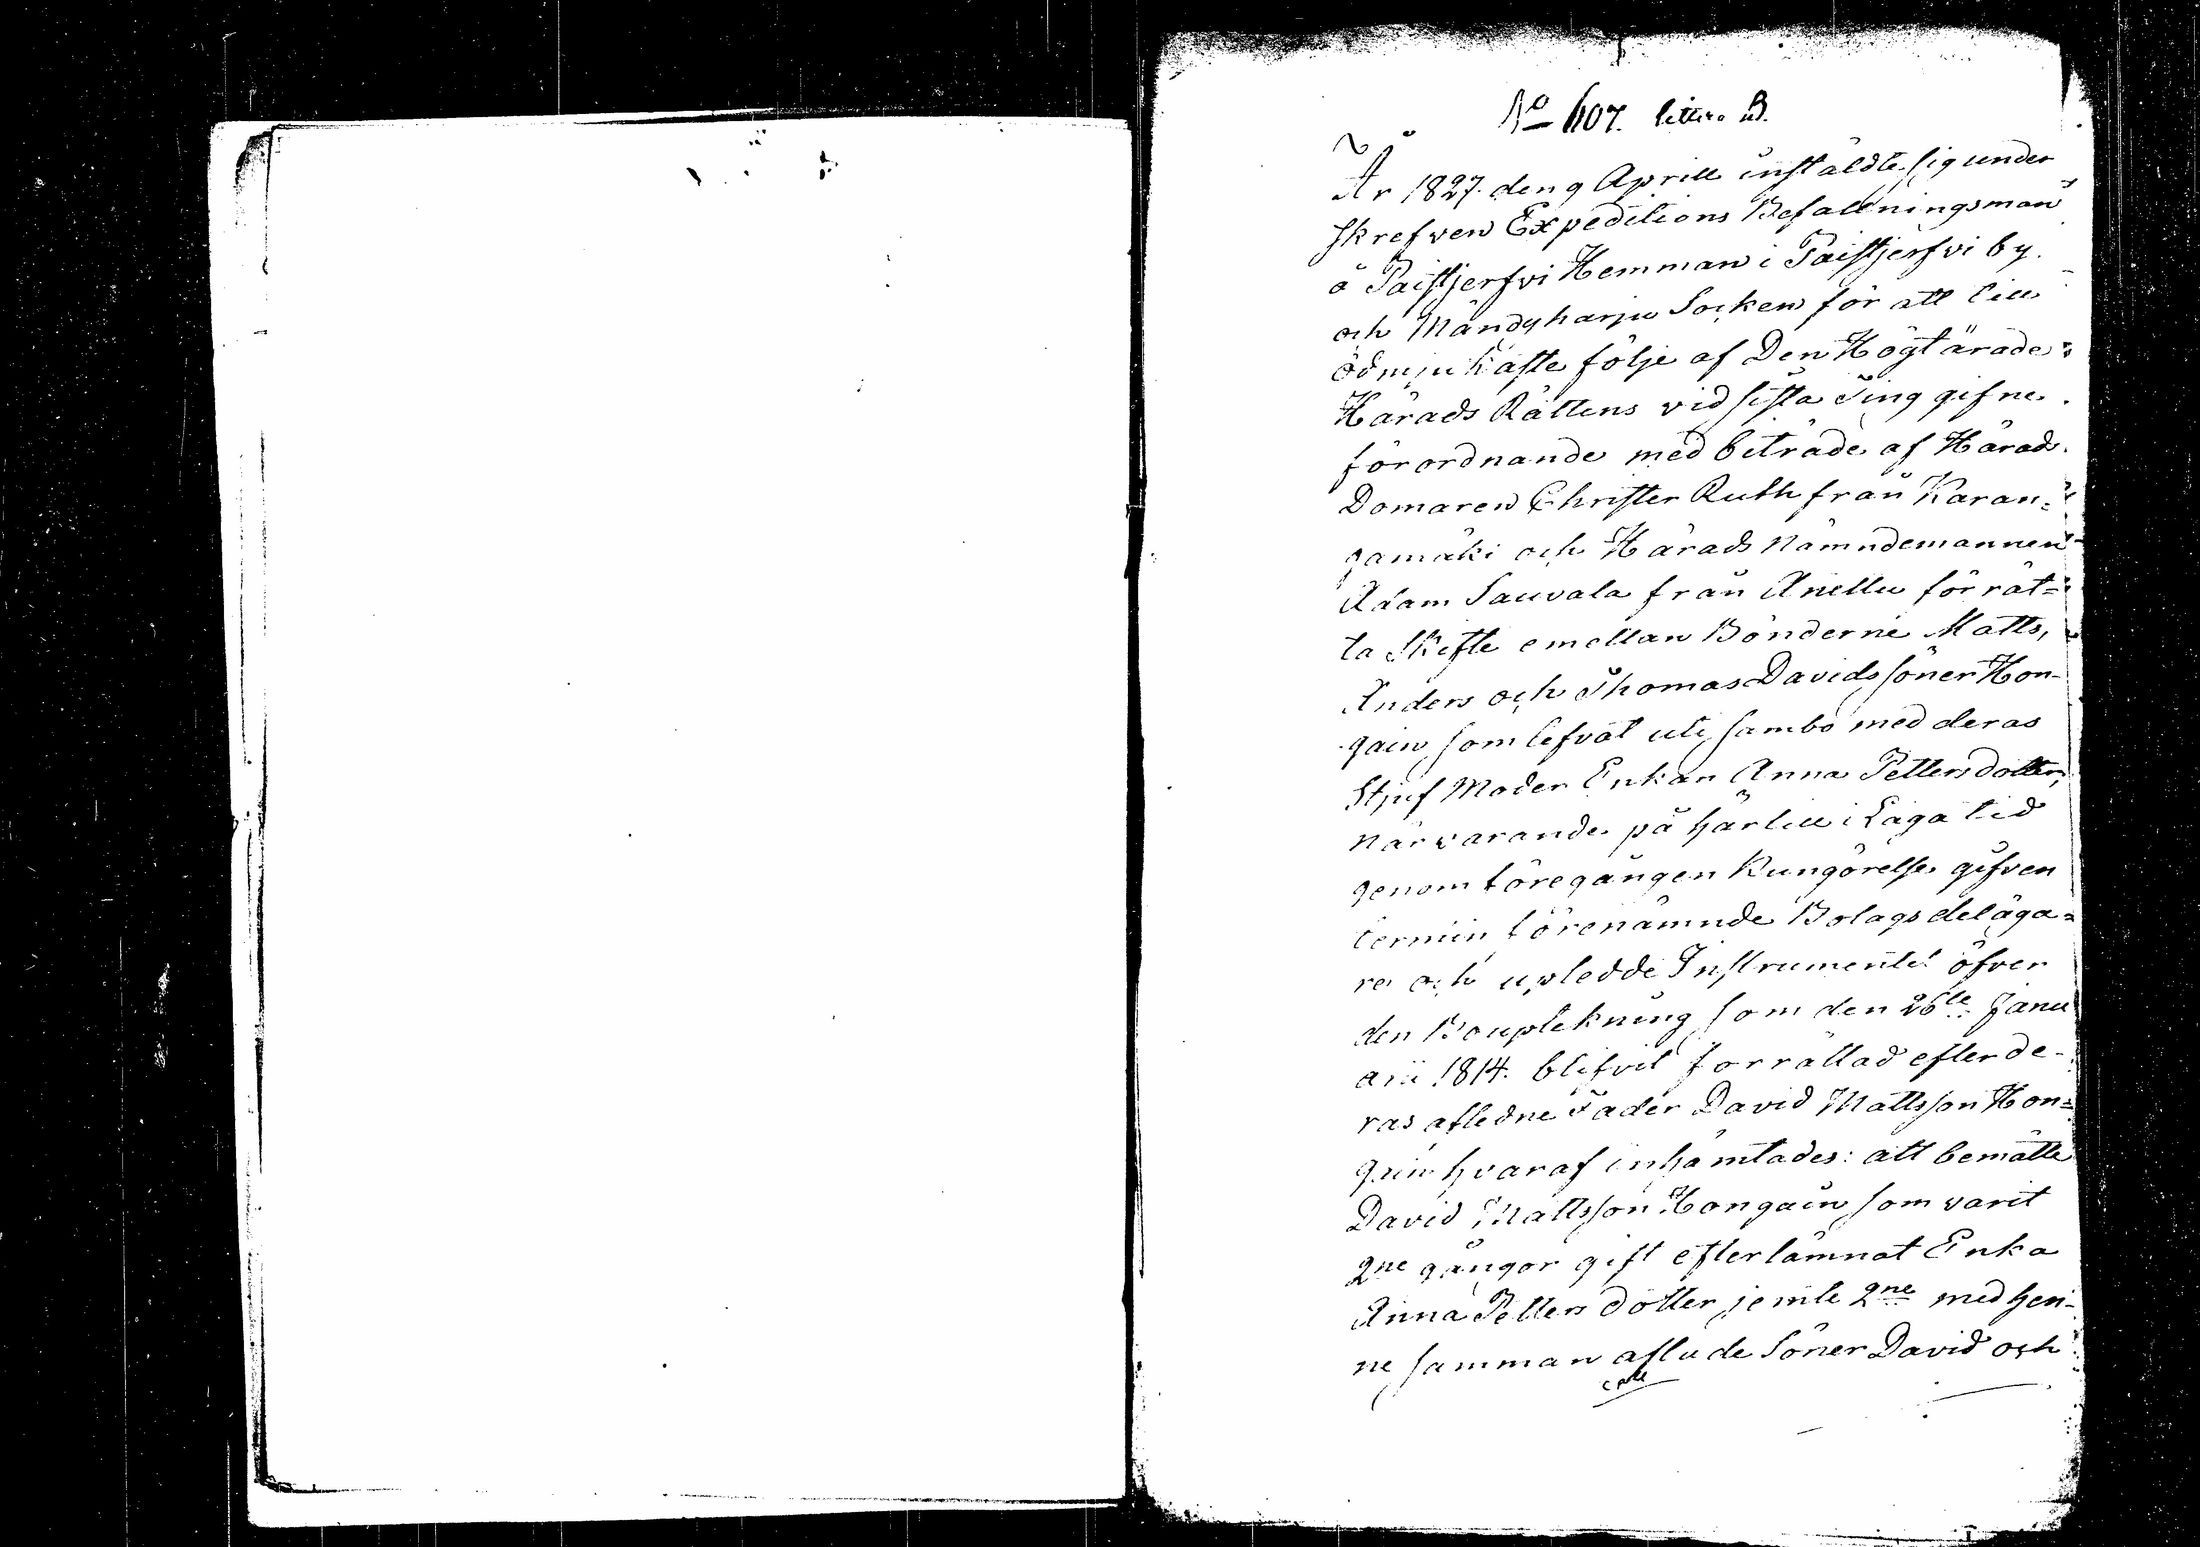 No 607. littera B.
År 1827. den 9 Aprill instäldte sig under
skrefven Expeditions Befallningsman
å Paistjerfvi Hemman i Paistjerfvi by
och Mändyharju Socken för att till
ödmjukaste följe af Den Högtärade
Härads Rättens vid sista Ting gifne
förordnande med biträde af Härads
Domaren Christer Ruth från Karan=
gamäki och Härads Nämndemannen
Adam Sauvala från Anellu förrät=
ta Skifte emellan Bönderne Matts,
Anders och Thomas Davidssöner Hon-
gain som lefvat uti sambo med deras
Stjuf Moder Enkan Anna Pettersdotter,
närvarande på härtill i Laga tid
genom föregången Kungörelse gifven
termin förenämnde Bolagsdeläga=
re och upledde Instrumentet öfver
den Bouptekning som den 26te Janu
arii 1814. blifvit förrättad efter de-
ras afledne Fader David Mattsson Hon=
gain hvaraf inhämtades: att bemälte
David Mattsson Hongain som varit
2ne gångor gift efterlämnat Enka
Anna Petters dotter jemte 2ne med hen-
ne samman aflade Söner David och